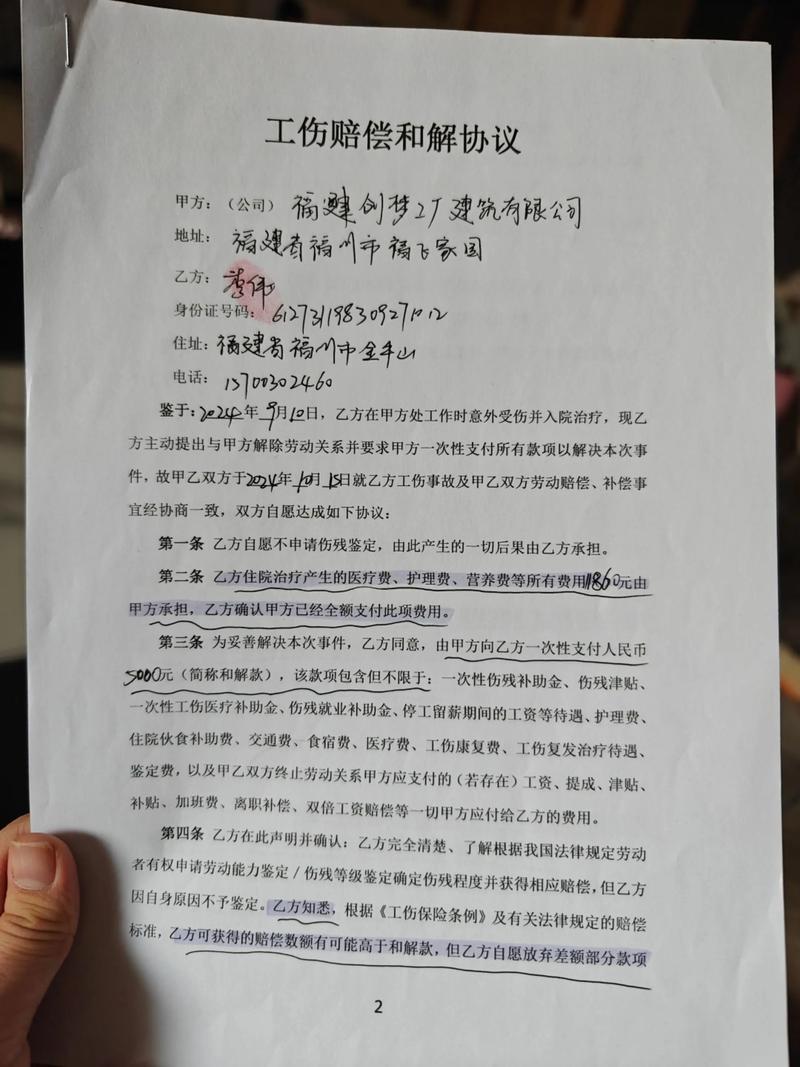 工伤赔偿和解协议
甲方：（公司） 福建创梦工厂建筑有限公司
地址： 福建省福州市福飞家园
乙方： 李伟
身份证号码： 612731198309271012
住址： 福建省福州市金牛山
电话： 15700302460
鉴于：2024年9月10日，乙方在甲方处工作时意外受伤并入院治疗，现乙
方主动提出与甲方解除劳动关系并要求甲方一次性支付所有款项以解决本次事
件，故甲乙双方于2024年10月15日就乙方工伤事故及甲乙双方劳动赔偿、补偿事
宜经协商一致，双方自愿达成如下协议：
第一条 乙方自愿不申请伤残鉴定，由此产生的一切后果由乙方承担。
第二条 乙方住院治疗产生的医疗费、护理费、营养费等所有费用11860元由
甲方承担，乙方确认甲方已经全额支付此项费用。
第三条 为妥善解决本次事件，乙方同意，由甲方向乙方一次性支付人民币
5000元（简称和解款），该款项包含但不限于：一次性伤残补助金、伤残津贴、
一次性工伤医疗补助金、伤残就业补助金、停工留薪期间的工资等待遇、护理费、
住院伙食补助费、交通费、食宿费、医疗费、工伤康复费、工伤复发治疗待遇、
鉴定费，以及甲乙双方终止劳动关系甲方应支付的（若存在）工资、提成、津贴、
补贴、加班费、离职补偿、双倍工资赔偿等一切甲方应付给乙方的费用。
第四条 乙方在此声明并确认：乙方完全清楚、了解根据我国法律规定劳动
者有权申请劳动能力鉴定/伤残等级鉴定确定伤残程度并获得相应赔偿，但乙方
因自身原因不予鉴定。乙方知悉，根据《工伤保险条例》及有关法律规定的赔偿
标准，乙方可获得的赔偿数额有可能高于和解款，但乙方自愿放弃差额部分款项
2